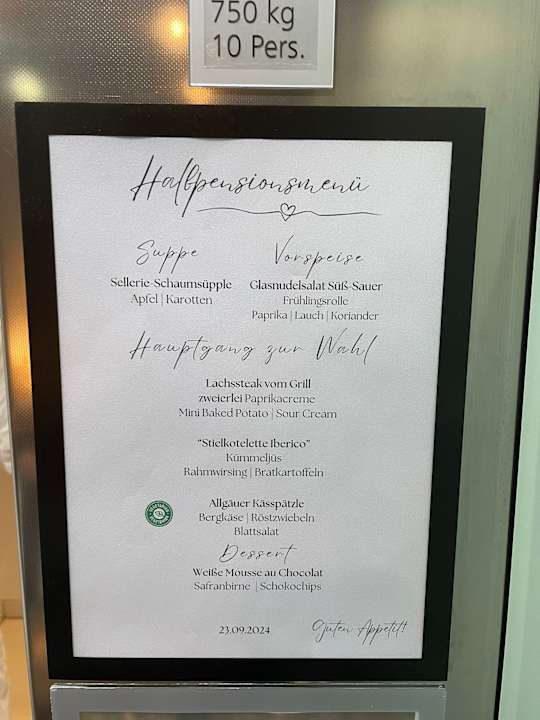 750 kg
10 Pers.
Halbpensionsmenü
Suppe
Sellerie-Schaumsüpple
Apfel | Karotten
Vorspeise
Glasnudelsalat Süß-Sauer
Frühlingsrolle
Paprika | Lauch | Koriander
Hauptgang zur Wahl
Lachssteak vom Grill
zweierlei Paprikacreme
Mini Baked Potato | Sour Cream
"Stielkotelette Iberico"
Kümmeljüs
Rahmwirsing | Bratkartoffeln
Allgäuer Kässpätzle
Bergkäse | Röstzwiebeln
Blattsalat
Dessert
Weiße Mousse au Chocolat
Safranbirne | Schokochips
23.09.2024
Guten Appetit!